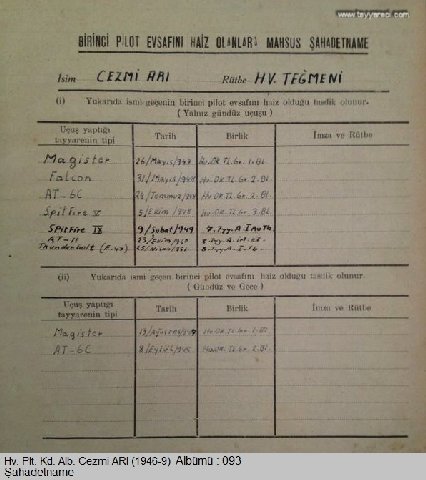 www.tayyareci.com
BİRİNCİ PİLOT EVSAFINI HAİZ OLANLARA MAHSUS ŞAHADETNAME
İsim CEZMİ ARI Rütbe HV. TEĞMENİ
(i) Yukarıda ismi geçenin birinci pilot evsafını haiz olduğu tasdik olunur.
( Yalnız gündüz uçuşu )
Uçuş yaptığı tayyarenin tipi Tarih Birlik İmza ve Rütbe
Magister 26/Mayıs/948 Av.Ok.Tl.Gr. 1.Bl.
Falcon 31/Mayıs/948 Av.Ok.Tl.Gr. 2.Bl.
AT-6C 28/Temmuz/948 Av.Ok.Tl.Gr. 2.Bl.
Spitfire V 5/Ekim/948 Av.Ok.Tl.Gr. 3.Bl.
Spitfire IX 9/Şubat/949
AT-11
Thunderbolt (P.47)
(ii) Yukarıda ismi geçen birinci pilot evsafını haiz olduğu tasdik olunur.
( Gündüz ve Gece )
Uçuş yaptığı tayyarenin tipi Tarih Birlik İmza ve Rütbe
Magister
AT-6C
Hv. Plt. Kd. Alb. Cezmi ARI (1946-9) Albümü : 093
Şahadetname